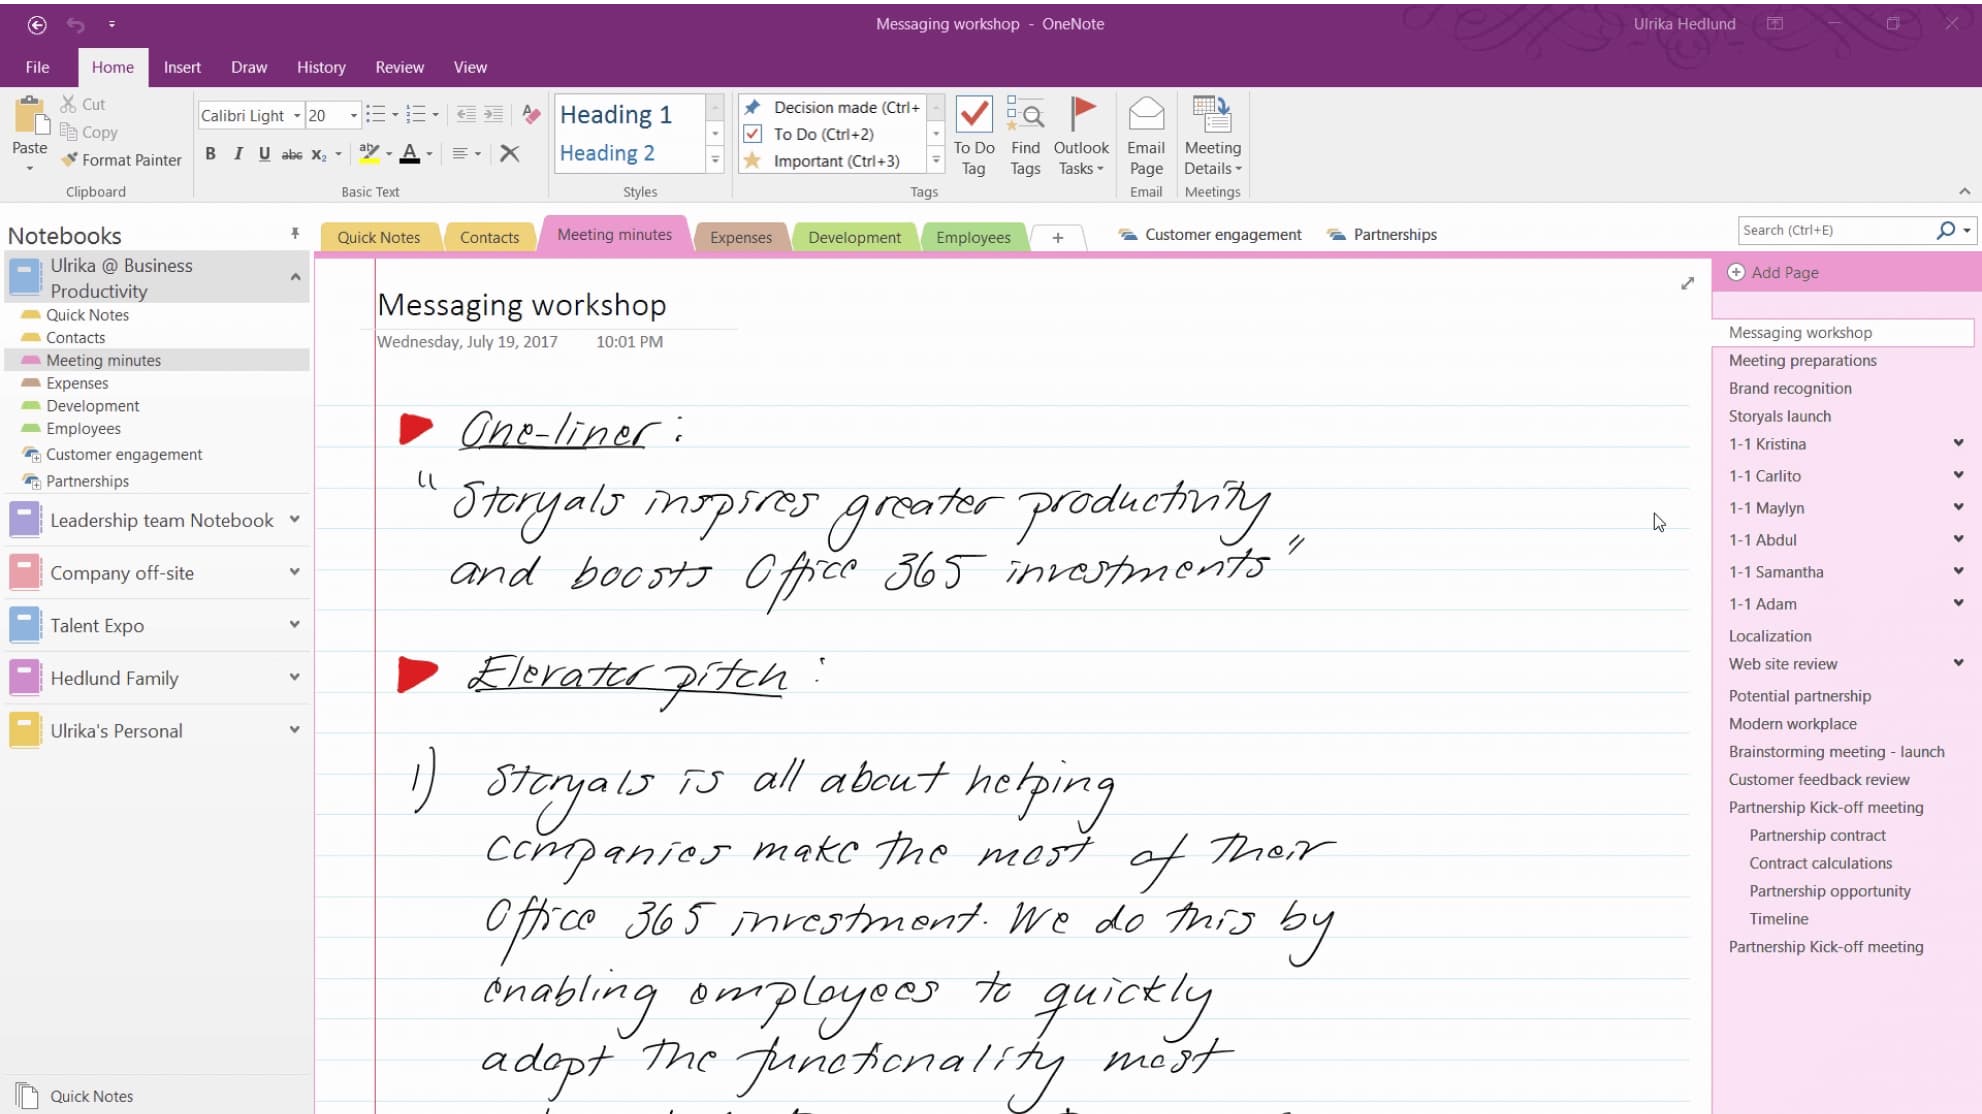 Messaging workshop - OneNote
Ulrika Hedlund
File Home Insert Draw History Review View
Paste
Cut
Copy
Format Painter
Clipboard
Calibri Light 20
B I U abc X₂ ab A
Basic Text
Heading 1
Heading 2
Styles
Decision made (Ctrl+
To Do (Ctrl+2)
Important (Ctrl+3)
To Do Tag
Find Tags
Outlook Tasks
Tags
Email Page
Email
Meeting Details
Meetings
Notebooks
Ulrika @ Business
Productivity
Quick Notes
Contacts
Meeting minutes
Expenses
Development
Employees
Customer engagement
Partnerships
Leadership team Notebook
Company off-site
Talent Expo
Hedlund Family
Ulrika's Personal
Quick Notes
Quick Notes Contacts Meeting minutes Expenses Development Employees + Customer engagement Partnerships
Search (Ctrl+E)
Messaging workshop
Wednesday, July 19, 2017 10:01 PM
One-liner:
"Storyals inspires greater productivity
and boosts Office 365 investments"
Elevator pitch:
1) Storyals is all about helping
companies make the most of their
Office 365 investment. We do this by
enabling employees to quickly
adopt the functionality most
Add Page
Messaging workshop
Meeting preparations
Brand recognition
Storyals launch
1-1 Kristina
1-1 Carlito
1-1 Maylyn
1-1 Abdul
1-1 Samantha
1-1 Adam
Localization
Web site review
Potential partnership
Modern workplace
Brainstorming meeting - launch
Customer feedback review
Partnership Kick-off meeting
Partnership contract
Contract calculations
Partnership opportunity
Timeline
Partnership Kick-off meeting